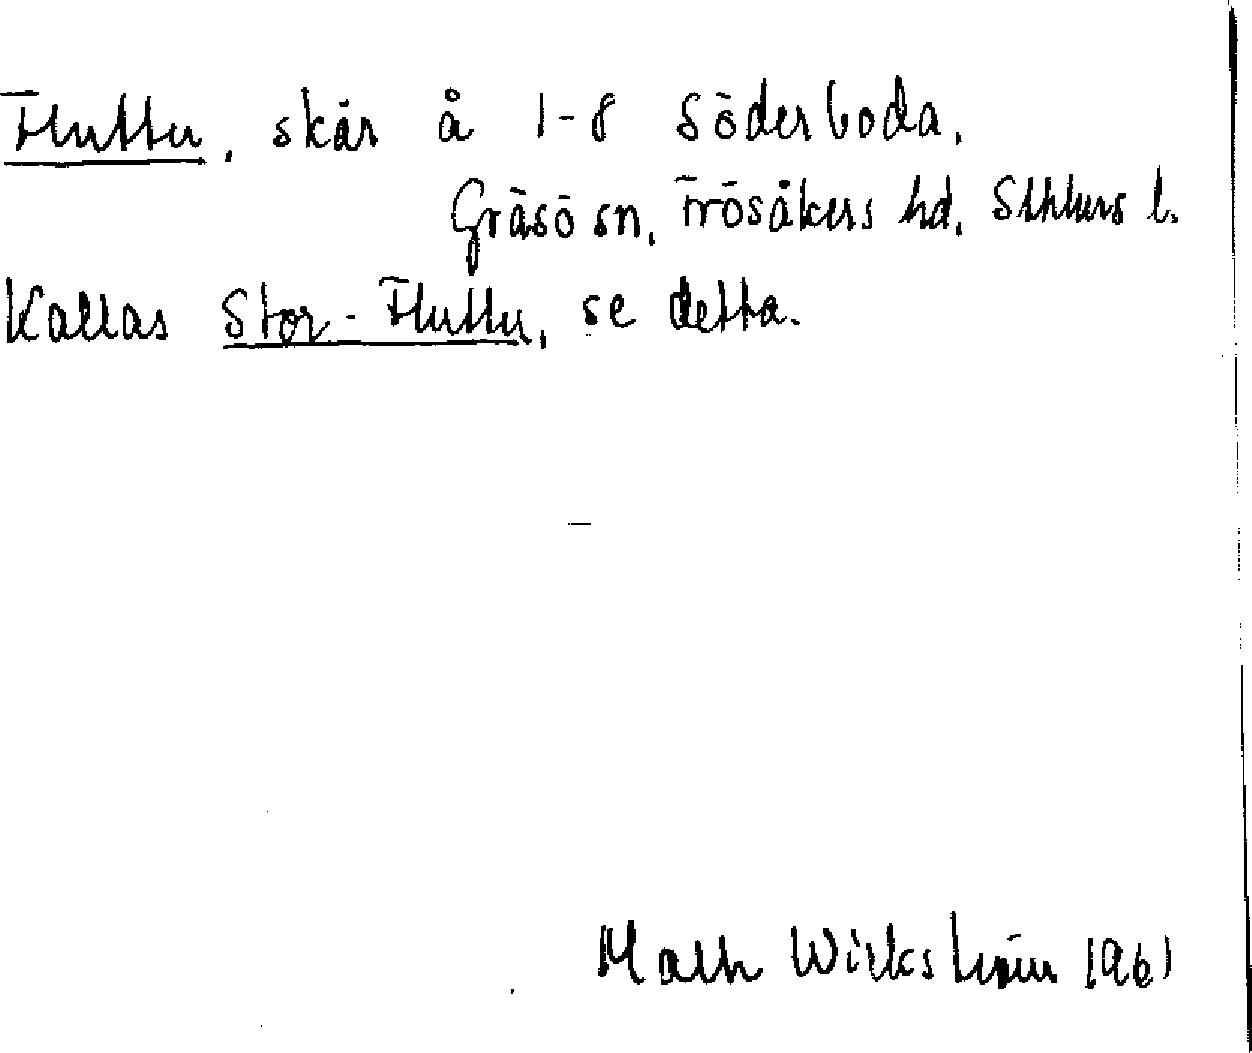 Fluttu, skär å 1-8 Söderboda,
Gräsö sn, Frösåkers hd, Sthlms l.
Kallas Stor-Fluttu, se detta.
Wickström 1961